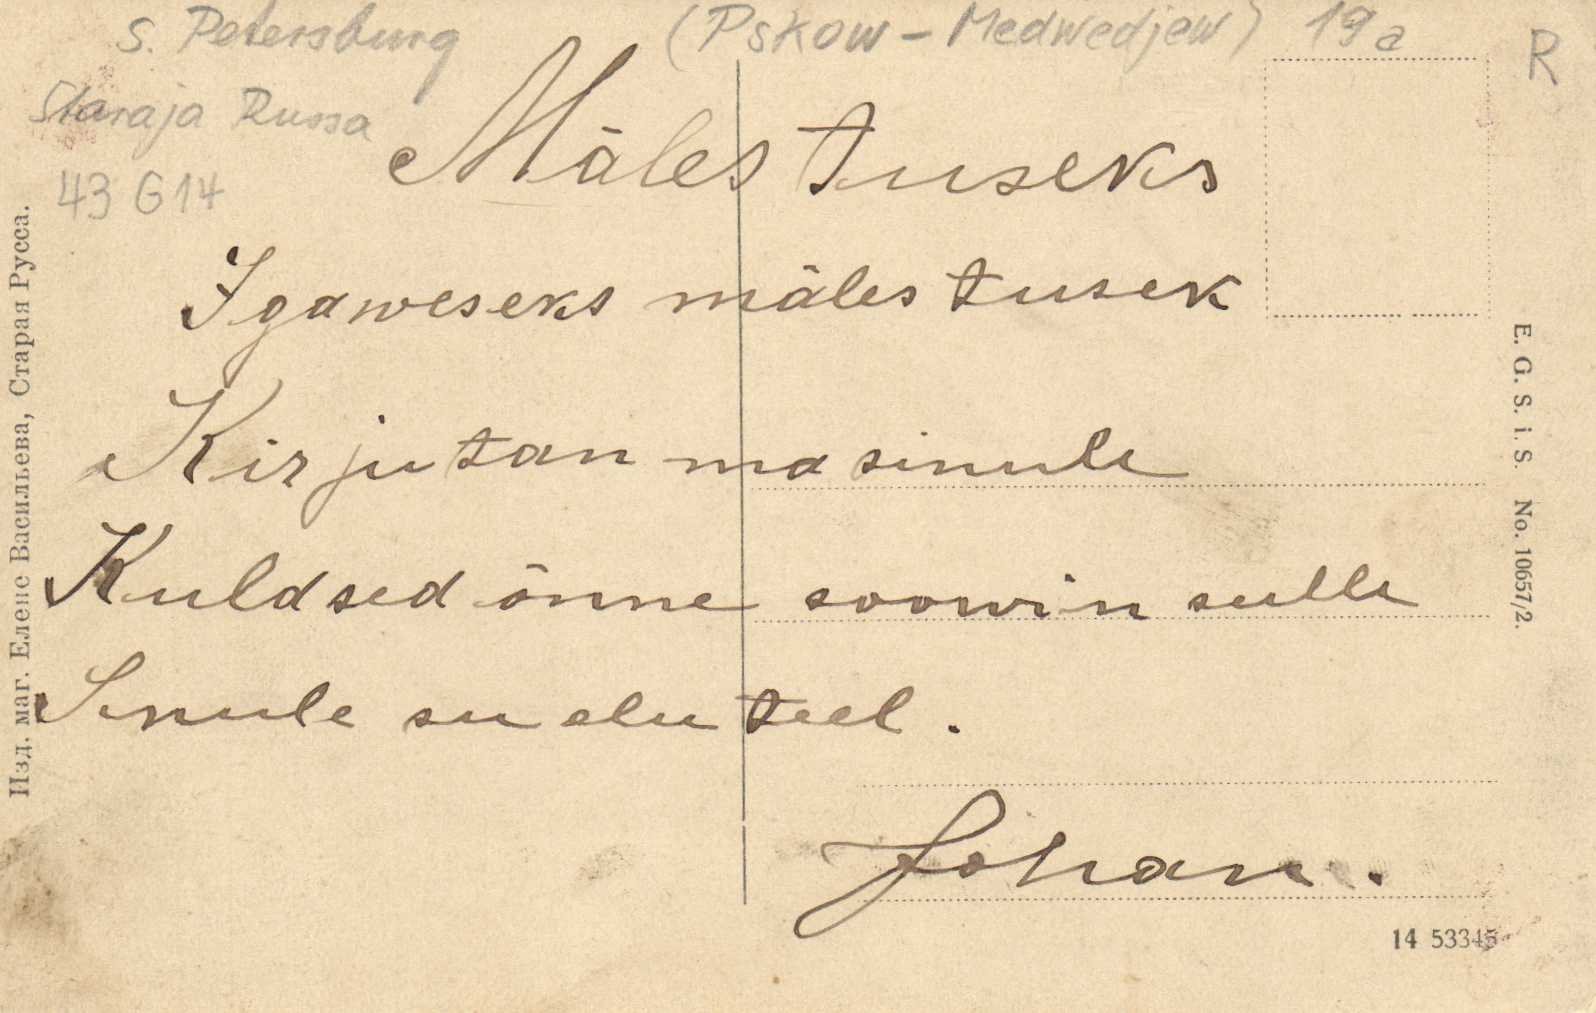 S. Petersburg (Pskow - Medwedjew) 19a
R
Staraja Russa
43 G 14
Mälestuseks
Igaweseks mälestusek
Kirjutan ma sinule
Kuldsed õnne soowin sulle
Sinule su elu teel.
Johan.
Изд. маг. Елене Васильева, Старая Русса.
E. G. S. i. S. No. 10657/2.
14 53345